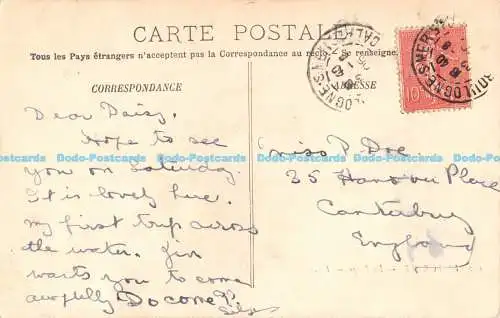 CARTE POSTALE
Tous les Pays étrangers n'acceptent pas la Correspondance au recto. Se renseigne
CORRESPONDANCE
Dear Daisy.
Hope to see
you on Saturday
It is lovely here.
my first trip across
the water.
wants you to come
awfully Do come
ADRESSE
Miss D Doe
35 Hanover Place
Canterbury
England
10
BOULOGNE-S-MER
Dodo-Postcards Dodo-Postcards Dodo-Postcards Dodo-Postcards Dodo-Postcards